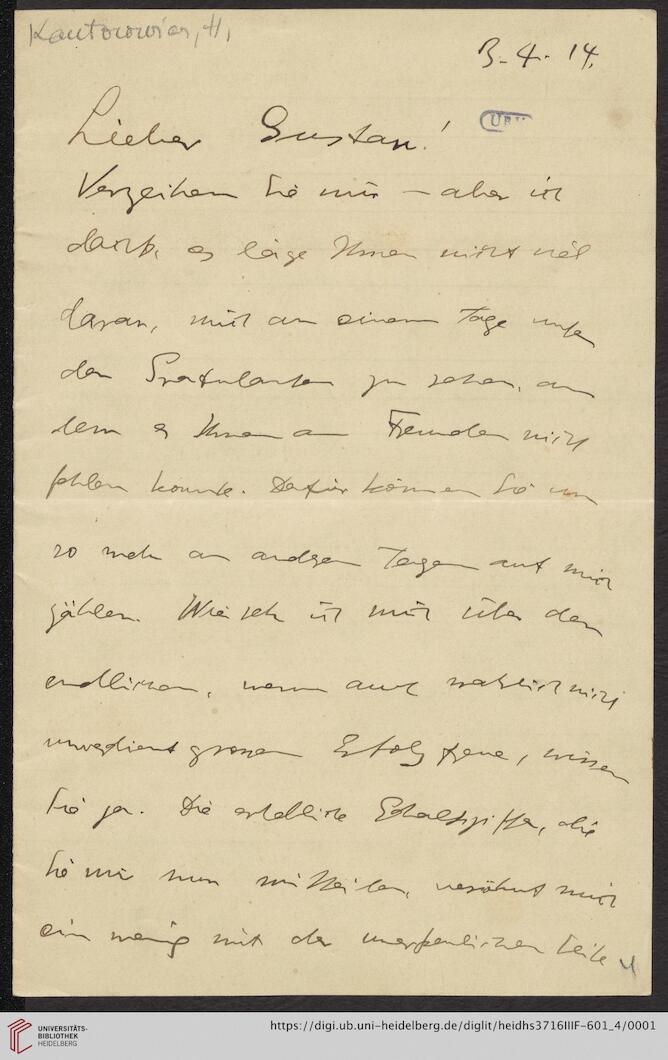 Kantorowicz, H.
3.4.14.
Lieber Gustav!
UBH
Verzeihen Sie mir – aber ich
dachte, es läge Ihnen nicht viel
daran, mich an einem Tage unter
den Gratulanten zu sehen, an
dem es Ihnen an Freunden nicht
fehlen konnte. Dafür können Sie um
so mehr an andren Tagen auf mich
zählen. Wie sehr ich mich über den
endlichen, wenn auch wahrlich nicht
unverdient grossen Erfolg freue, wissen
Sie ja. Die erhebliche Gehaltsziffer, die
Sie mir nun mitteilen, versöhnt mich
ein wenig mit der unerfreulichen Seite
UNIVERSITÄTS-
BIBLIOTHEK
HEIDELBERG
https://digi.ub.uni-heidelberg.de/diglit/heidhs3716IIIF-601_4/0001